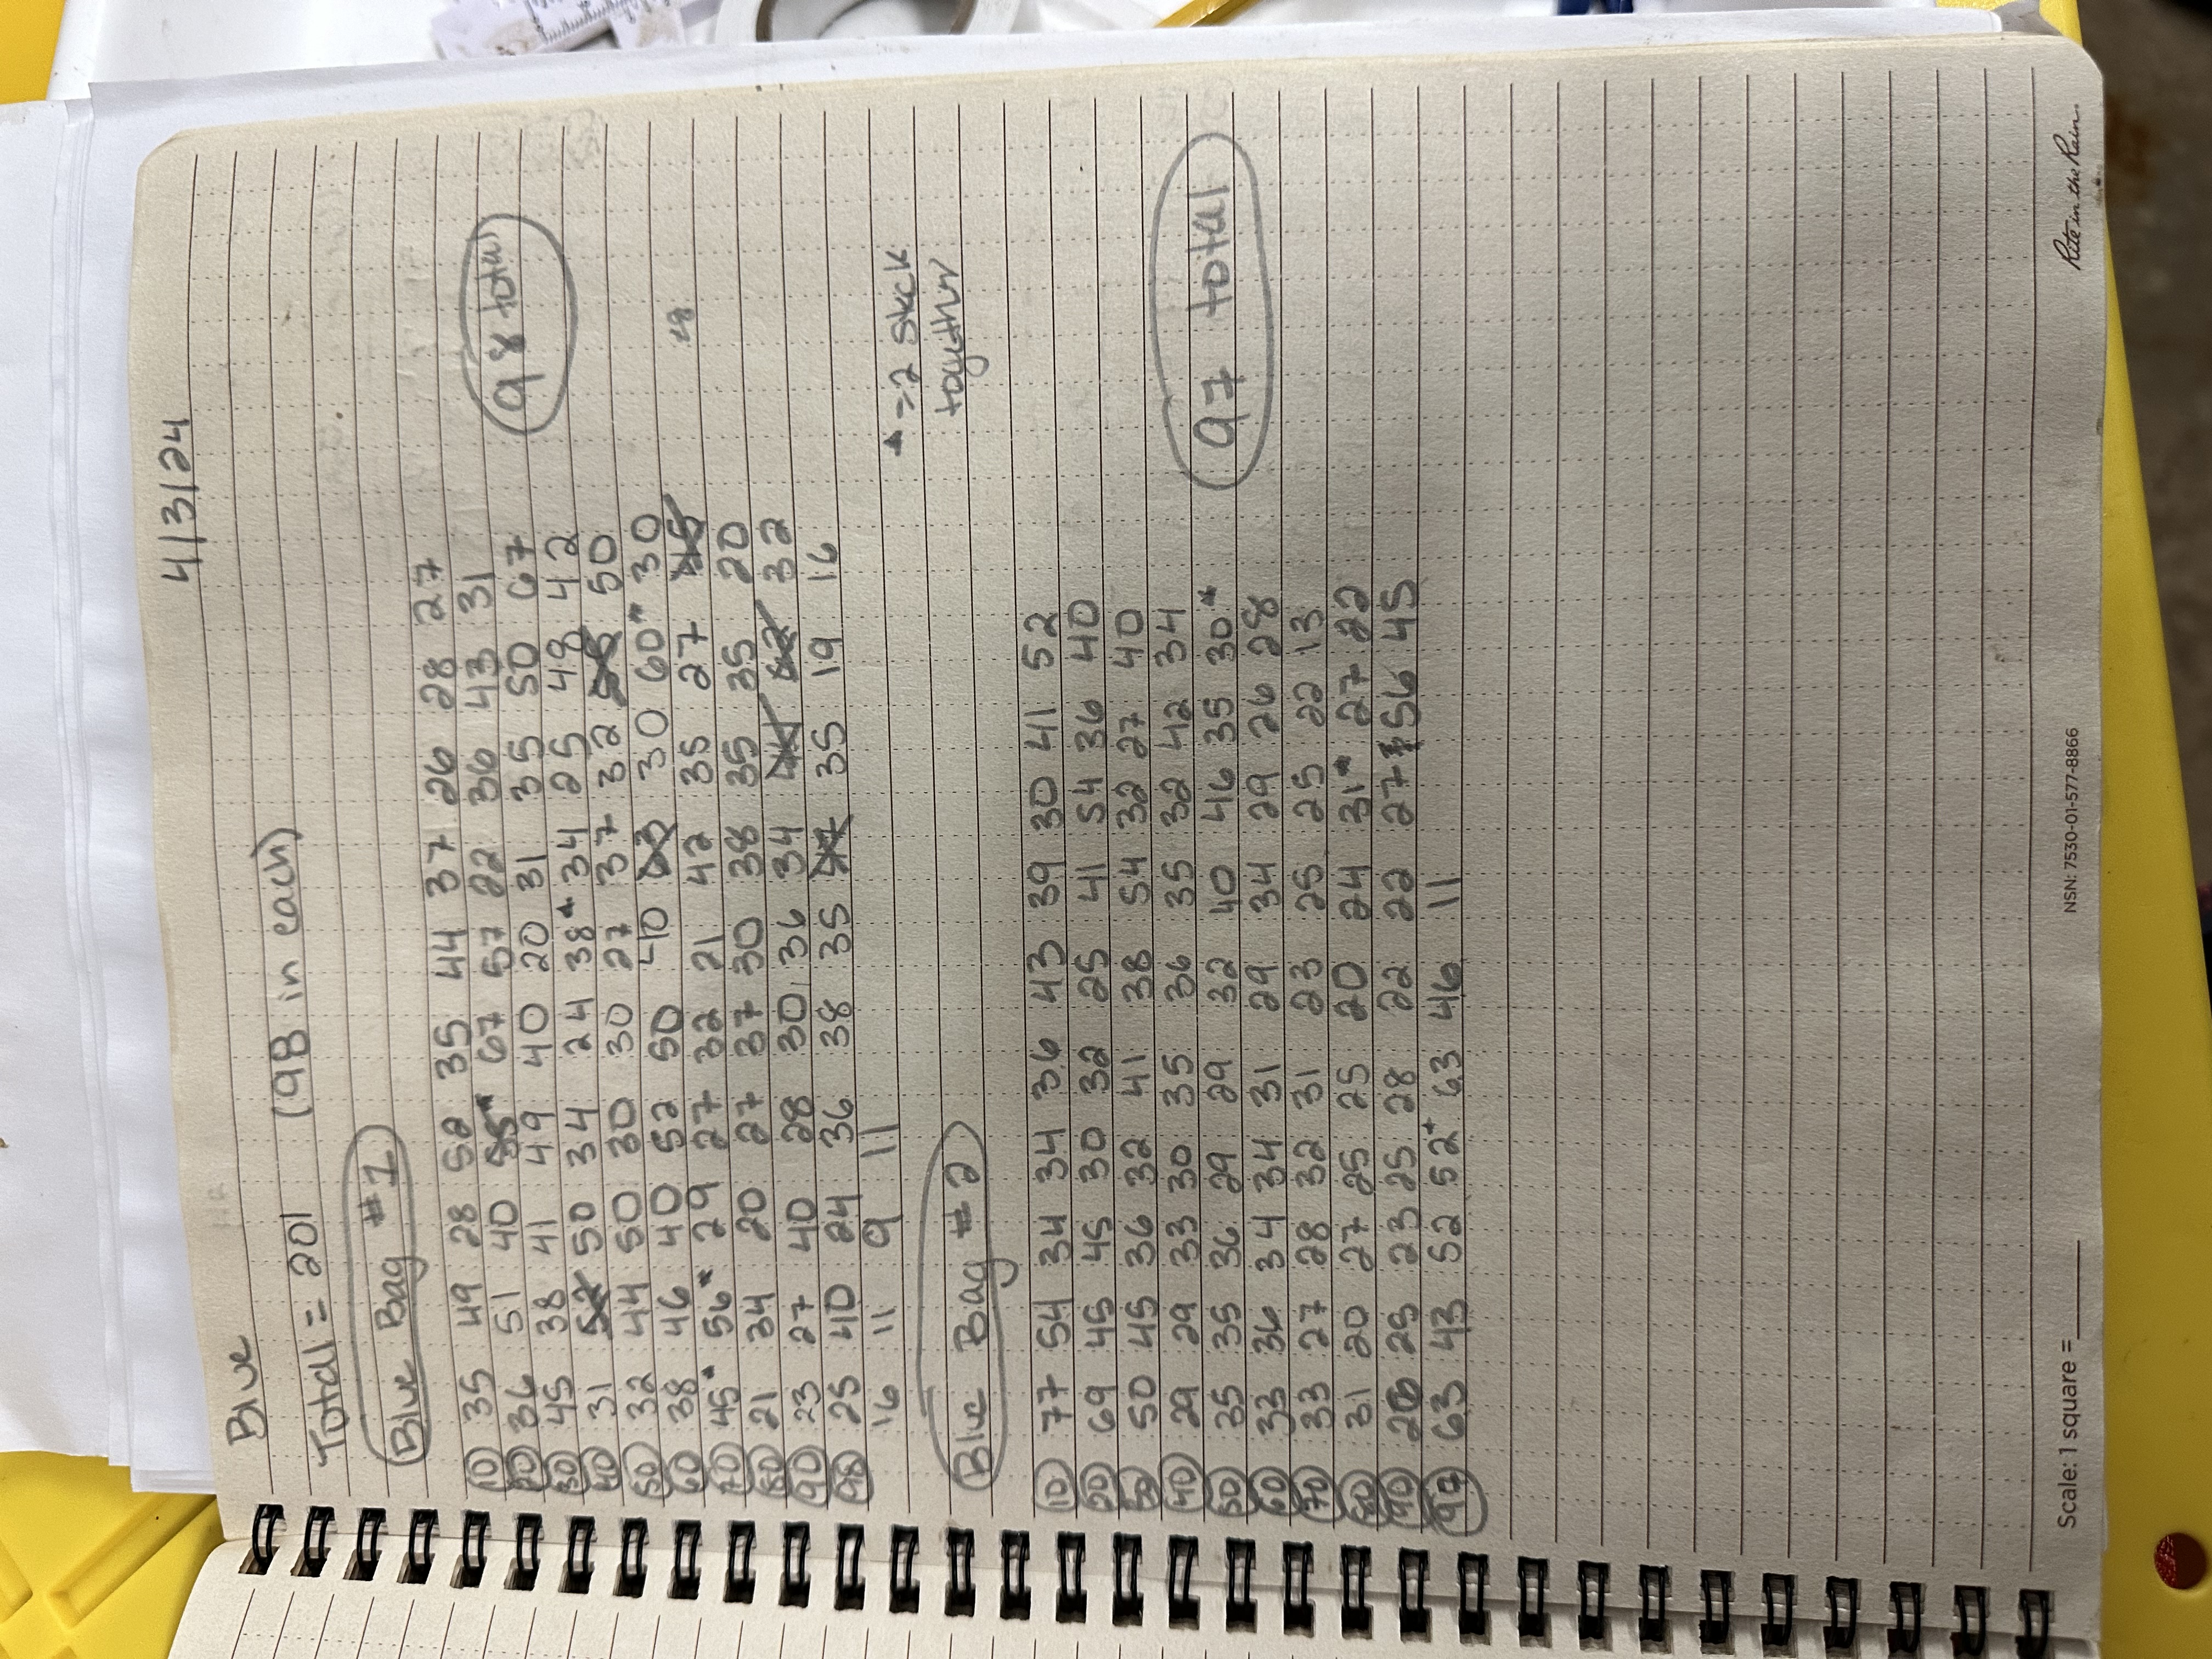 4/3/24
Blue
Total = 201 (98 in each)
Blue Bag #1
10 35 49 28 52 35 44 37 26 28 27
20 36 51 40 55* 67 57 22 36 43 31
98 total
30 45 38 41 49 40 20 31 35 50 67
40 31 50 34 24 38* 34 25 48 42
50 32 44 50 30 30 27 37 32 50
60 38 46 40 52 50 40 63 30 60* 30
70 45* 56* 29 27 32 21 42 35 27 45
80 21 34 20 27 37 30 38 35 35 20
90 23 27 40 28 30 36 34 44 62 32
98 25 40 24 36 38 35 35 19 16
16 11 9 11
* = 2 stuck
together
Blue Bag #2
10 77 54 34 34 36 43 39 30 41 52
20 69 45 45 30 32 25 41 54 36 40
30 50 45 36 32 41 38 54 32 27 40
40 29 29 33 30 35 36 35 32 42 34
97 total
50 35 35 36 29 29 32 40 46 35 30*
60 33 36 34 34 31 29 34 29 26 28
70 33 27 28 32 31 23 25 25 22 13
80 31 20 27 25 25 20 24 31* 27 22
90 26 25 23 25 28 22 22 27 56 45
97 63 43 52 52* 63 46 11
Scale: 1 square =______
NSN: 7530-01-577-8866
Rite in the Rain